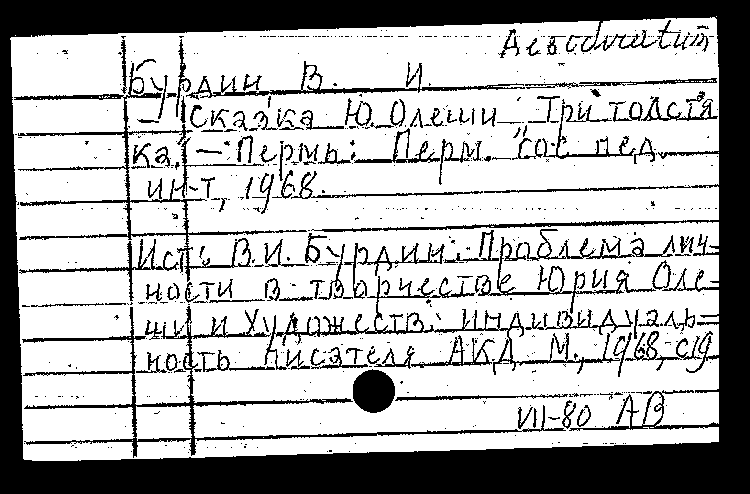 Бурдин, В. И.
— "Сказка Ю. Олеши "Три толстя
ка." — Пермь: Перм. гос пед.
ин-т, 1968.
Ист: В.И. Бурдин. Проблема лич-
ности в творчестве Юрия Оле-
ши и Художеств. индивидуаль-
ность писателя. АКД М., 1968, с19
VII-80 АВ